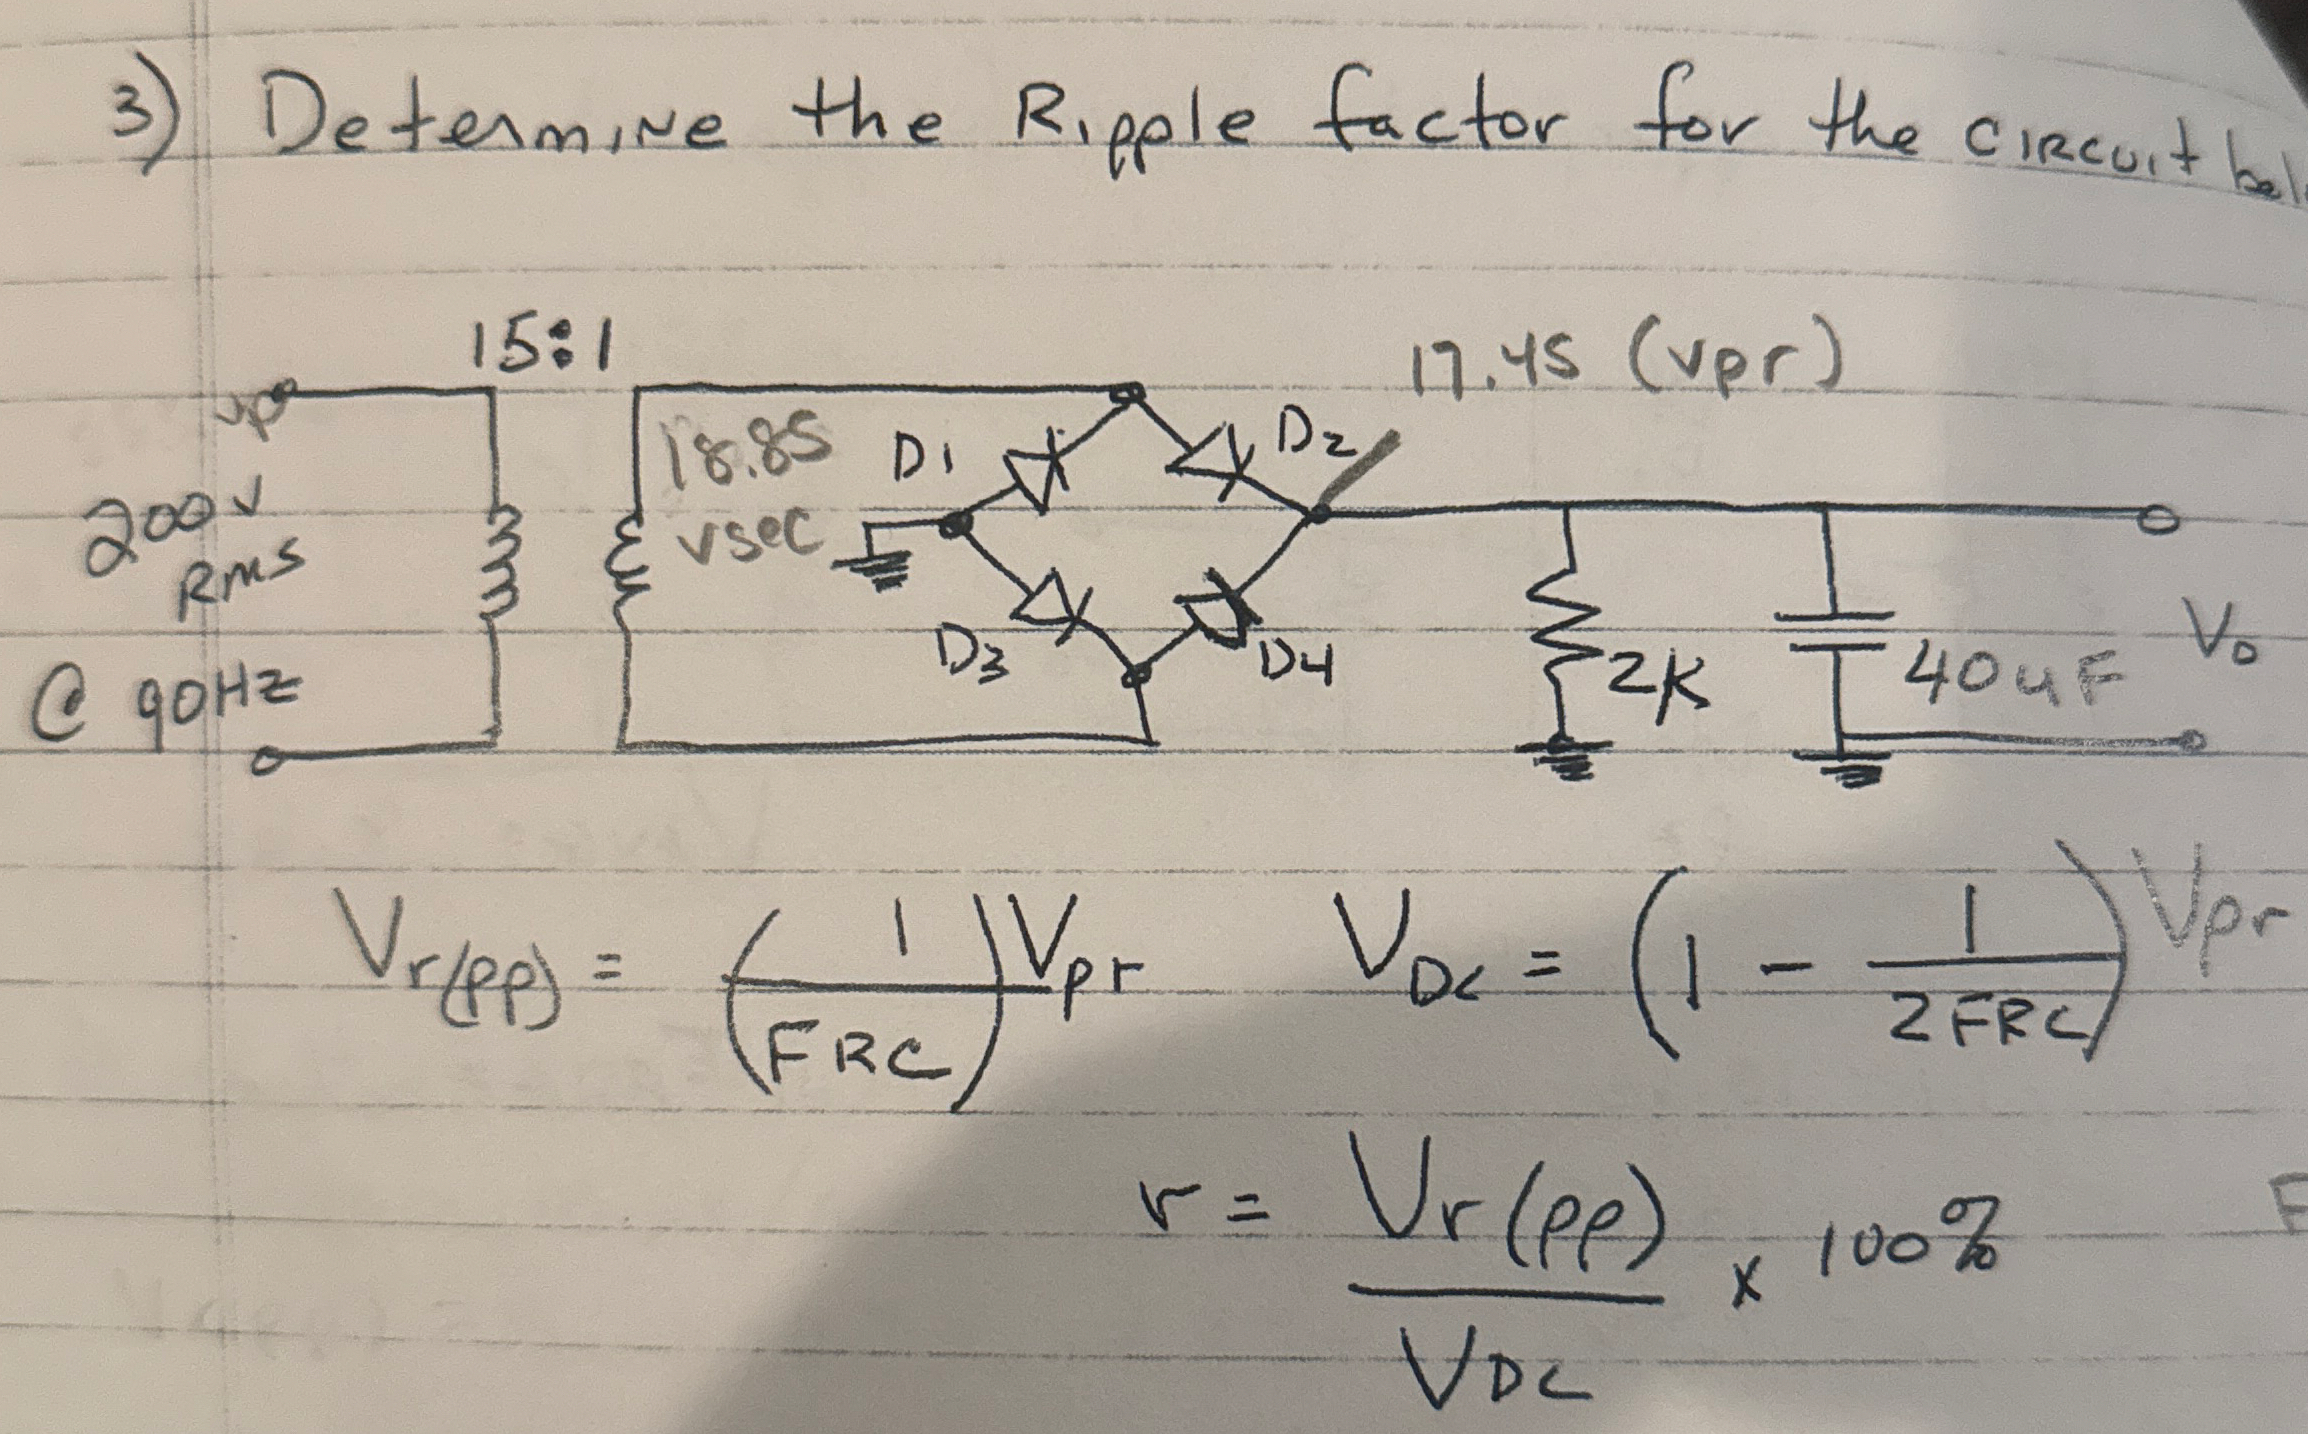 3) Determine the Ripple factor for the circuit
15:1
17.45 (vpr)
vp
18.85
vsec
D1
D2
200V
RMS
@ 90Hz
D3
D4
2K
40uF
Vo
Vr(pp) = (1/FRC) Vpr    VDC = (1 - 1/2FRC) Vpr
r = Vr(pp)/VDC x 100%